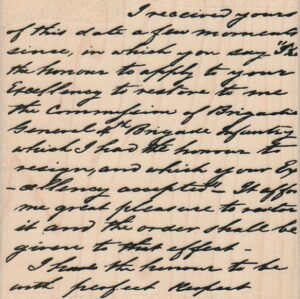 I received yours
of this date a few moments
since, in which you say "I have
the honour to apply to your
Excellency to restore to me
the commission of Brigadier
General 4th Brigade Infantry
which I had the honour to
resign, and which your Ex
-cellency accepted". It affo
me great pleasure to restore
it and the order shall be
given to that effect -
I have the honour to be
with perfect respect